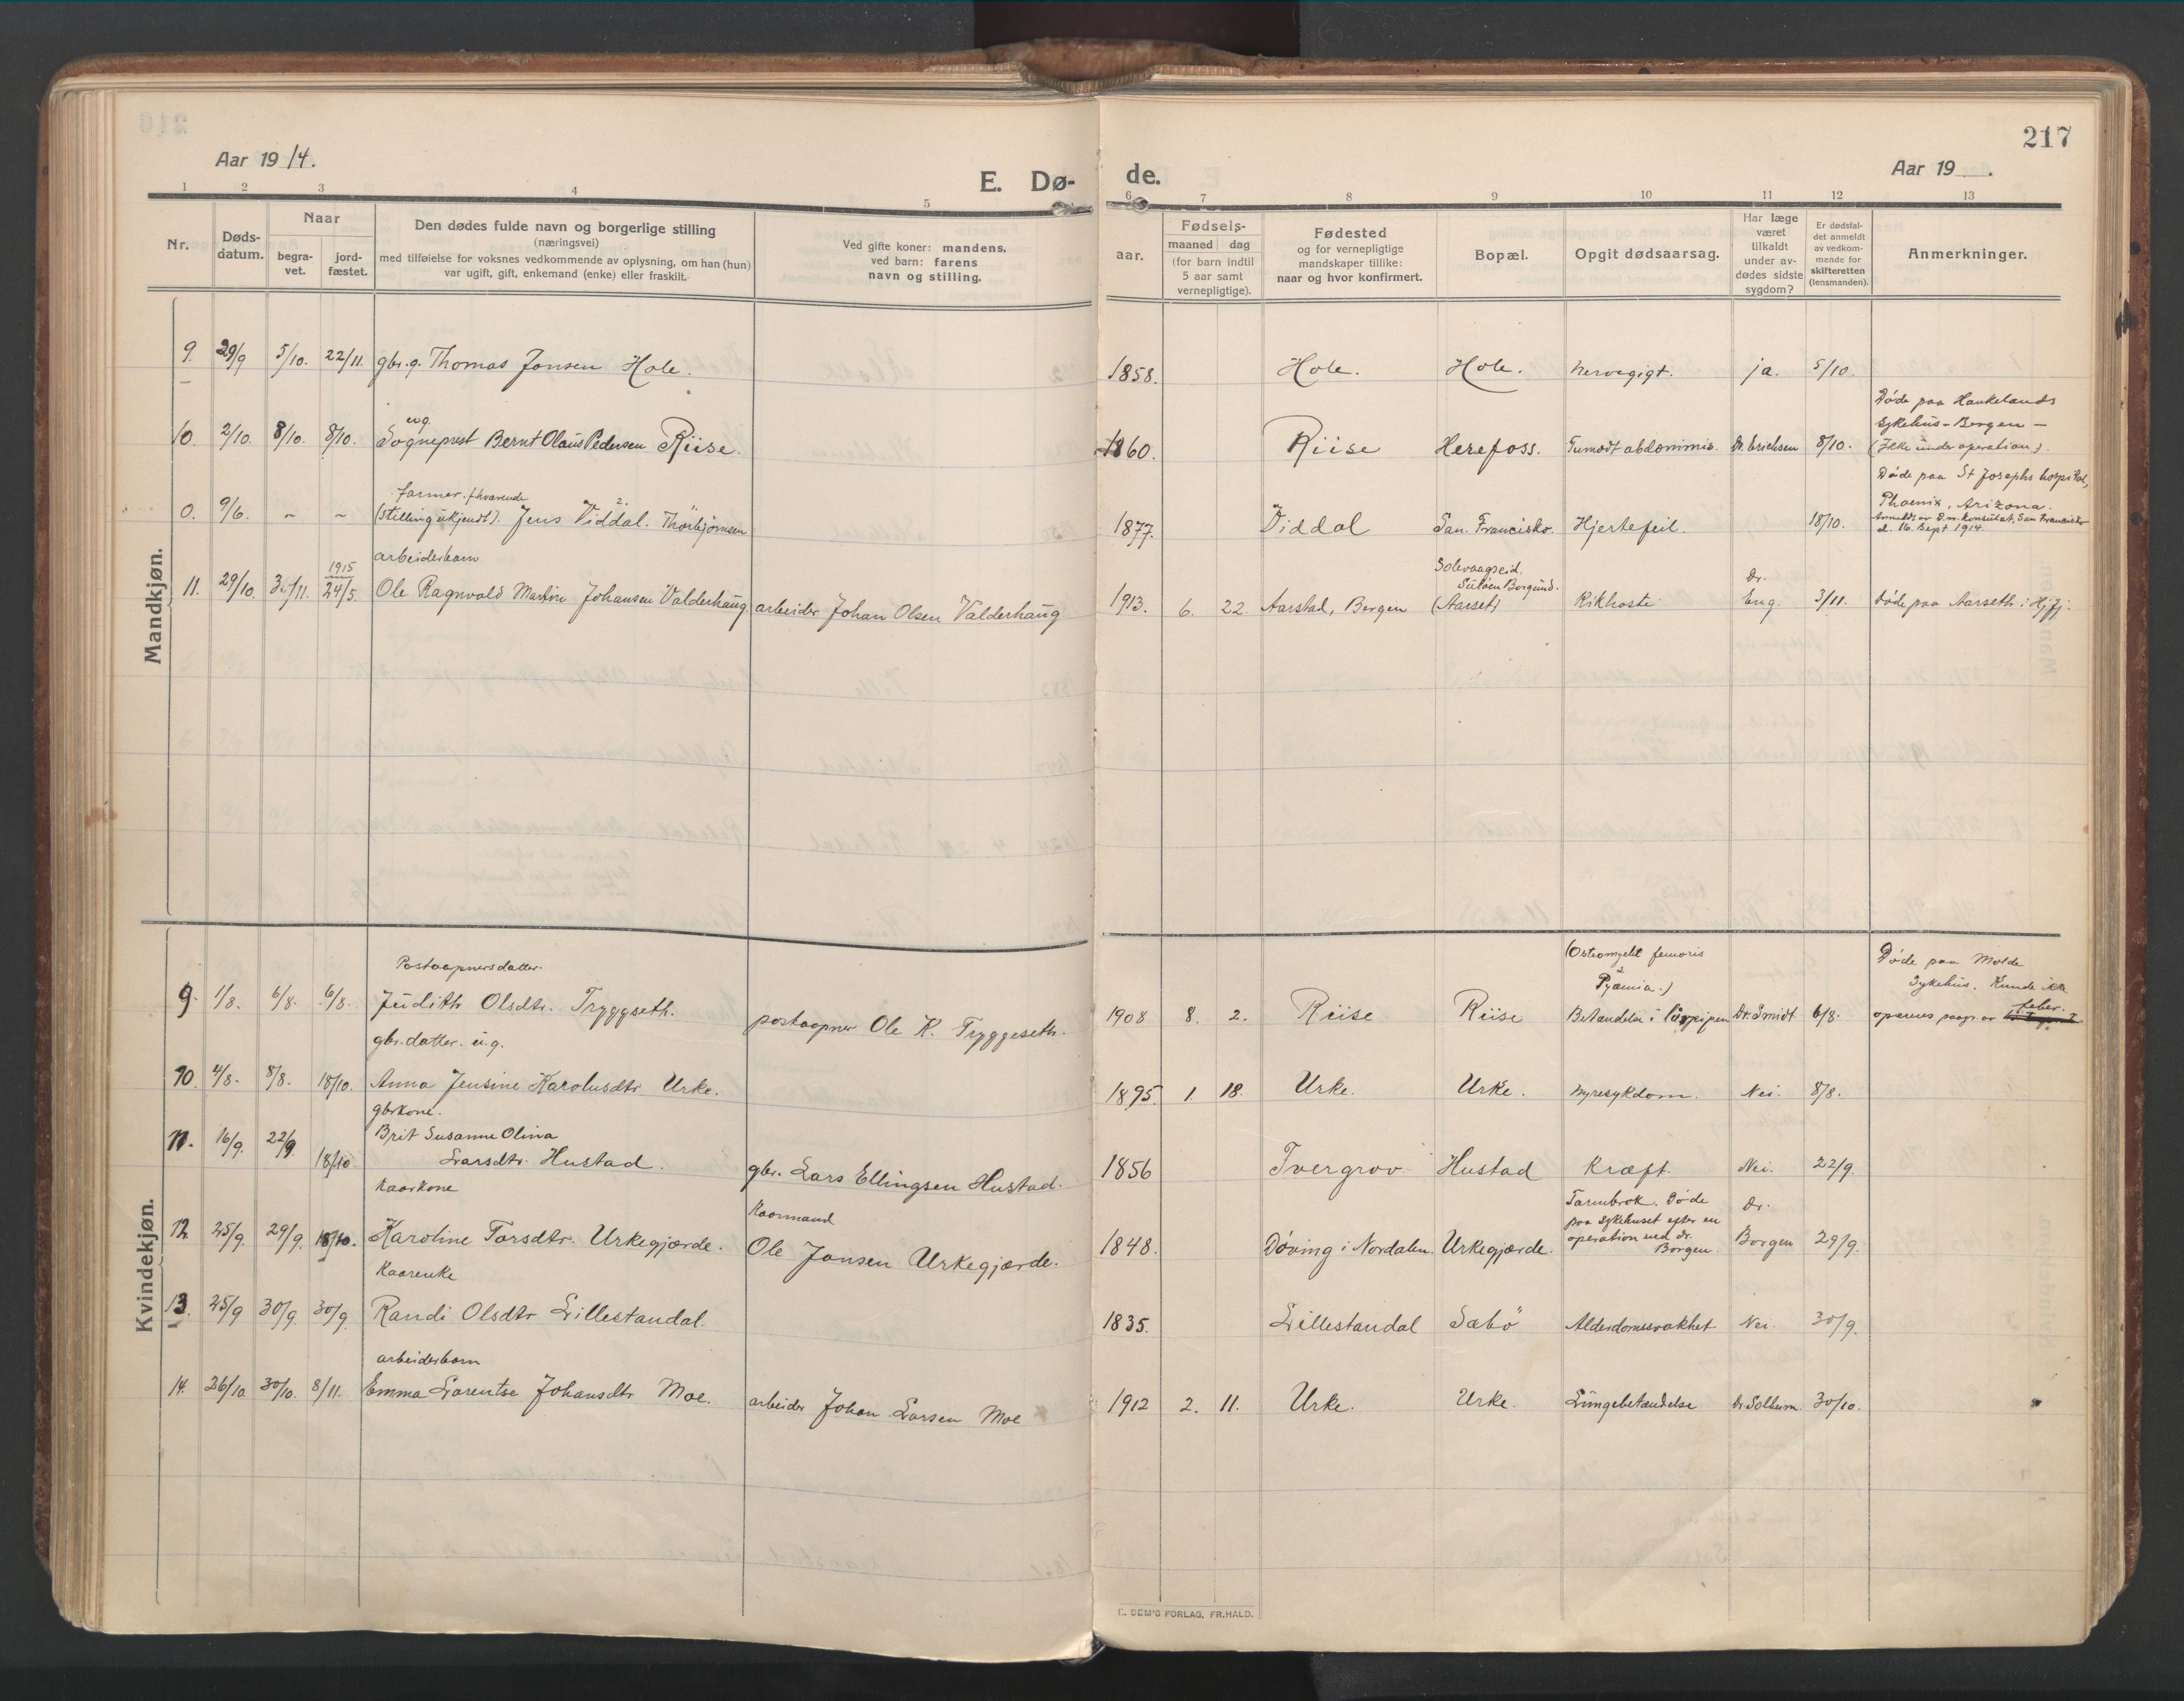 217
Aar 1914.
E. Dø-
de.
Aar 19 .
1 2 3 4 5 6 7 8 9 10 11 12 13
Nr.
Døds-
datum.
Naar
begra-
vet.
jord-
fæstet.
Den dødes fulde navn og borgerlige stilling
(næringsvei)
med tilføielse for voksnes vedkommende av oplysning, om han (hun)
var ugift, gift, enkemand (enke) eller fraskilt.
Ved gifte koner: mandens,
ved barn: farens
navn og stilling.
aar.
Fødsels-
maaned dag
(for barn indtil
5 aar samt
vernepligtige).
Fødested
og for vernepligtige
mandskaper tillike:
naar og hvor konfirmert.
Bopæl.
Opgit dødsaarsag.
Har læge
været
tilkaldt
under av-
dødes sidste
sygdom?
Er dødsfal-
det anmeldt
av vedkom-
mende for
skifteretten
(lensmanden).
Anmerkninger.
Mandkjøn.
9. 29/9 5/10. 22/11. gbr. g. Thomas Jonsen Hole. 1858. Hole. Hole. Nervegigt. ja. 5/10.
Døde paa Haukelands
Sykehus - Bergen -
(Ikke under operation).
10. 2/10. 8/10. 8/10. Sogneprest Bernt Olaus Pedersen Riise. 1860. Riise Herefoss. abdominis. Dr. Erichsen 8/10.
Døde paa St Josephs hospital,
Phoenix, Arizona.
d. 16. Sept 1914.
farmer.
0. 9/6. ~ ~ (Stilling ukjendt). Jens Viddal. Thorbjørnsen 2. 1877. Viddal San. Francisko. Hjertefeil. 18/10.
arbeiderbarn
1915
11. 29/10. 24/5. Ole Ragnvald Martin Johansen Valderhaug arbeider Johan Olsen Valderhaug 1913. 6. 22. Aarstad, Bergen
Solevaagseid,
Borgund.
(Aarset) Kikhoste Dr. Eng. 3/11. Døde paa Aarseth i Hjfj.
Kvindekjøn.
Postaapnersdatter.
9. 1/8. 6/8. 6/8. Judith Olsdtr. Tryggseth. postaapner Ole K. Tryggeseth. 1908 8. 2. Riise Riise
(Osteomyelit femoris
2
Pyæmia.)
Betændelse i Dr. Smidt 6/8.
Døde paa Molde
Sykehus. Kunde ikke
opereres paagr. av feber.
gbr. datter. u. g.
10. 4/8. 8/8. 18/10. Anna Jensine Karolusdtr Urke. 1895. 1. 18. Urke. Urke. Nyresykdom. Nei. 8/8.
gbrkone.
11. 16/9. 22/9. 18/10. Brit Susanne Olina
Larsdtr. Hustad. gbr. Lars Ellingsen Hustad. 1856 Tvergrov. Hustad Kræft. Nei. 22/9.
Kaarkone
12. 25/9. 29/9. 18/10. Karoline Torsdtr. Urkegjærde.
Kaarmand
Ole Jonsen Urkegjærde. 1848. Døving i Nordalen. Urkegjærde.
Tarmbrok. Døde
paa Sykehuset efter en
operation ved Dr.
Borgen. Dr. Borgen 29/9.
Kaarenke
13. 25/9 30/9. 30/9. Randi Olsdtr Lillestandal. 1835. Lillestandal Sæbø Alderdomssvakhet Nei. 30/9.
arbeiderbarn
14. 26/10. 30/10. 8/11. Emma Larentse Johansdtr Moe. arbeider Johan Larsen Moe 1912 2. 11. Urke. Urke. Lungebetændelse Dr Solheim 30/10.
E. SEM'S FORLAG, FR.HALD.